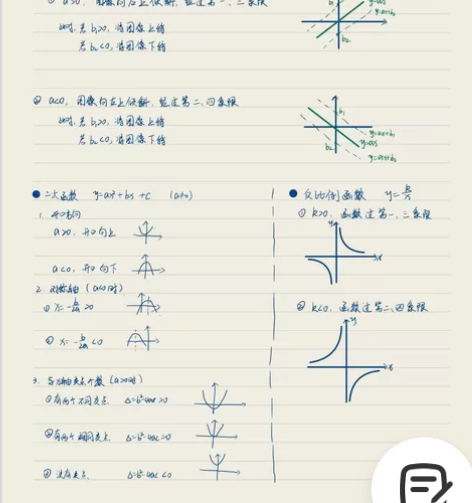 ① a>0, 图像向右上倾斜, 经过第一、三象限
此时, 若 b₁>0, 将图像上移
若 b₂<0, 将图像下移
y=ax
y=ax+b₂
② a<0, 图像向左上倾斜, 经过第二、四象限
此时, 若 b₁>0, 将图像上移
若 b₂<0, 将图像下移
b₁
b₂
y=ax+b₁
y=ax
y=ax+b₂
● 二次函数 y=ax²+bx+c (a≠0)
1. 开口方向
a>0, 开口向上
a<0, 开口向下
2. 对称轴 (a>0时)
① x=-b/2a >0
② x=-b/2a <0
3. 与x轴交点个数 (a>0时)
①有两个不同交点 Δ=b²-4ac>0
②有两个相同交点 Δ=b²-4ac=0
③ 没有交点 Δ=b²-4ac<0
● 反比例函数 y=k/x
① k>0, 函数过第一、三象限
y
x
② k<0, 函数过第二、四象限
y
x